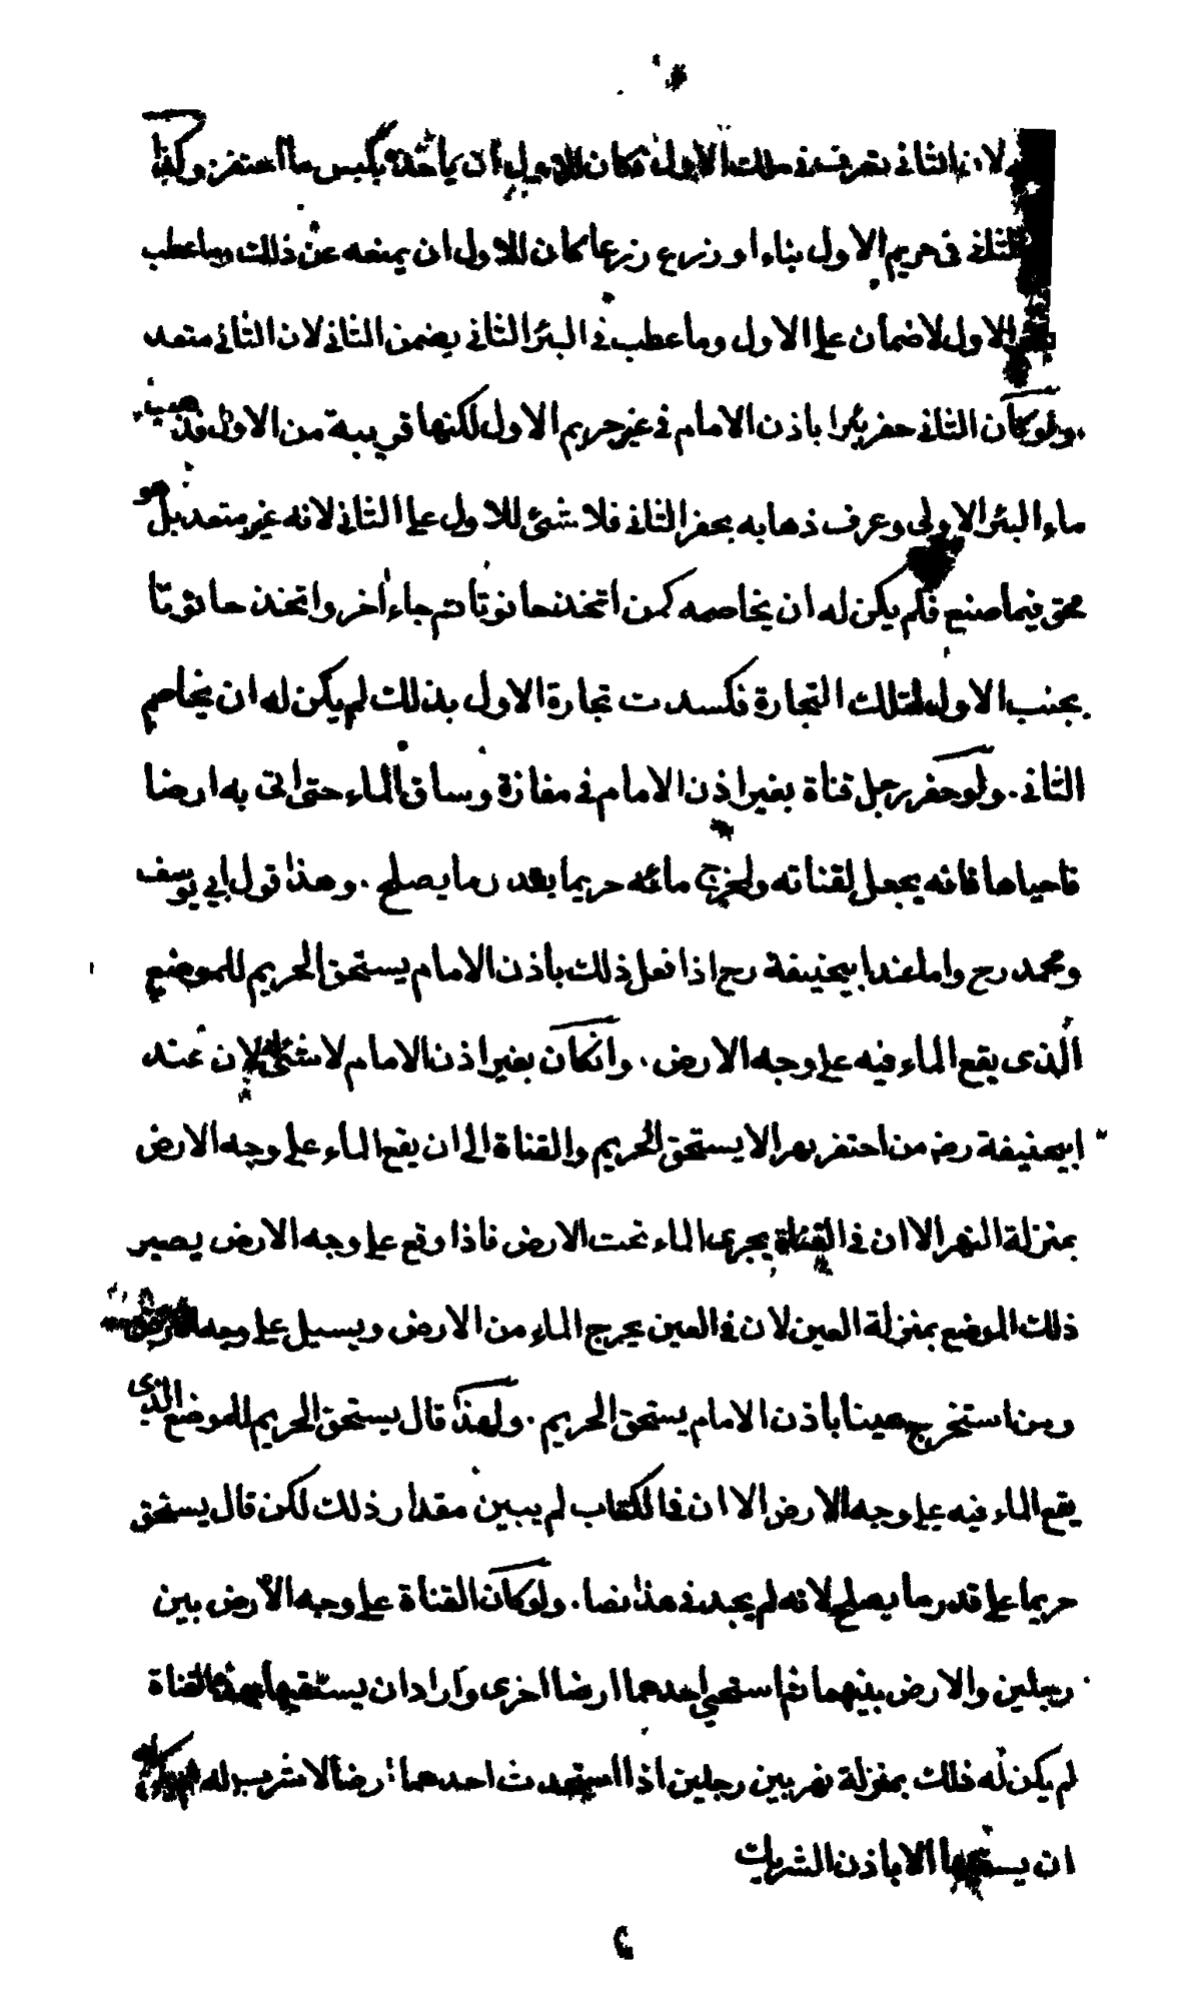 لان الثانى تصرف فى ملك الاول فكان للاول ان ياخذه بكبس ما احتفر وكذا
الثانى فى حريم الاول بناء او زرع زرعا كان للاول ان يمنعه عن ذلك وما عطب
الاول لا ضمان على الاول وما عطب فى البئر الثانى يضمن الثانى لان الثانى متعد
ولو كان الثانى حفر بئرا باذن الامام فى غير حريم الاول لكنها قريبة من الاول فذهب
ماء البئر الاولى وعرف ذهابه بحفر الثانى فلا شئ للاول على الثانى لانه غير متعد بل هو
محق فيما صنع فلم يكن له ان يخاصمه كمن اتخذ حانوتا ثم جاء اخر واتخذ حانوتا
بجنب الاول لتلك التجارة فكسدت تجارة الاول بذلك لم يكن له ان يخاصم
الثانى . ولو حفر رجل قناة بغير اذن الامام فى مفازة وساق الماء حتى اتى به ارضا
فاحياها فانه يجعل لقناته ولمخرج مائه حريما بقدر ما يصلح . وهذا قول ابي يوسف
ومحمد رح واما عند ابيحنيفة رح اذا فعل ذلك باذن الامام يستحق الحريم للموضع
الذى يقع الماء فيه على وجه الارض . وانكان بغير اذن الامام لا شئ له لان عند
ابيحنيفة رضه من احتفر نهرا لا يستحق الحريم والقناة الى ان يقع الماء على وجه الارض
بمنزلة النهر الا ان فى القناة يجرى الماء تحت الارض فاذا وقع على وجه الارض يصير
ذلك الموضع بمنزلة العين لان فى العين يخرج الماء من الارض ويسيل على وجه الارض
ومن استخرج عينا باذن الامام يستحق الحريم . ولهذا قال يستحق الحريم للموضع الذى
يقع الماء فيه على وجه الارض الا ان فى الكتاب لم يبين مقدار ذلك لكن قال يستحق
حريما على قدر ما يصلح لانه لم يجد فى هذا نصا . ولو كان القناة على وجه الارض بين
رجلين والارض بينهما ثم استحيى احدهما ارضا اخرى واراد ان يسقيها بهذه القناة
لم يكن له ذلك بمنزلة نهر بين رجلين اذا استحدث احدهما ارضا لا شرب له لم يكن له
ان يسقيها الا باذن الشريك